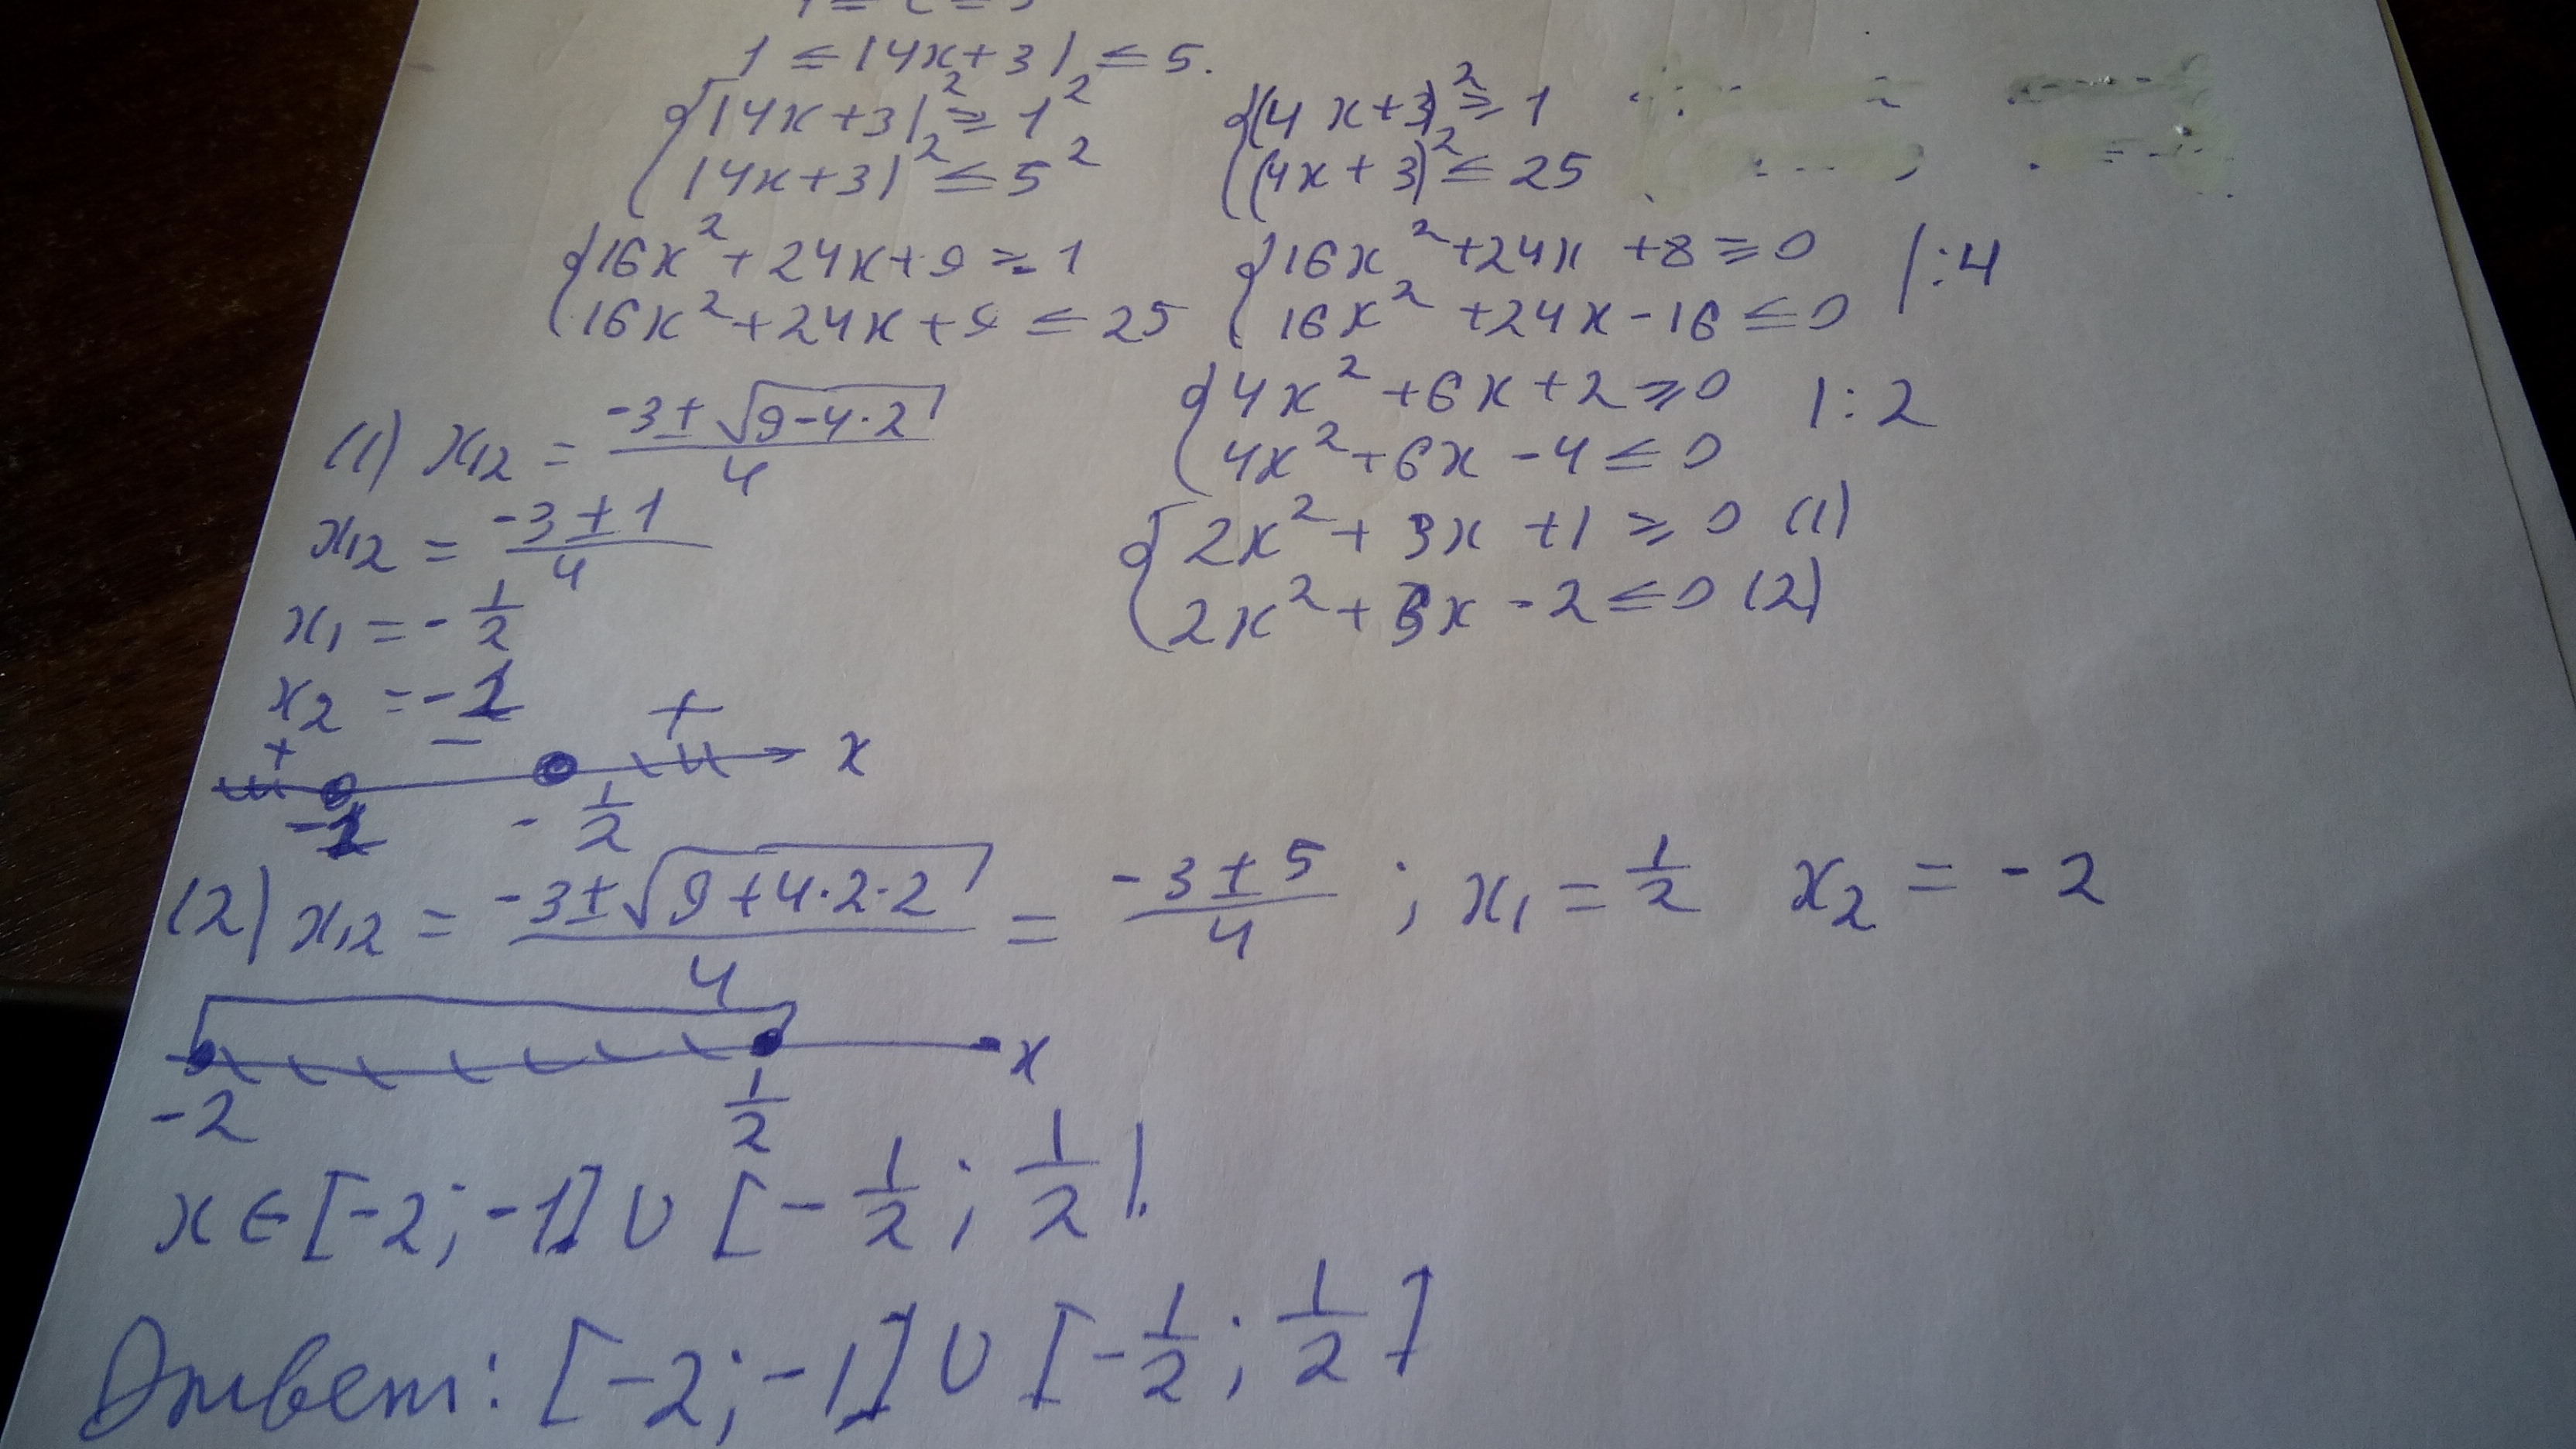 1 ≤ |4x+3| ≤ 5.
{ |4x+3|² ≥ 1² { (4x+3)² ≥ 1
|4x+3|² ≤ 5² (4x+3)² ≤ 25
{ 16x² + 24x + 9 ≥ 1 { 16x² + 24x + 8 ≥ 0 |:4
16x² + 24x + 9 ≤ 25 16x² + 24x - 16 ≤ 0
{ 4x² + 6x + 2 ≥ 0 |:2
4x² + 6x - 4 ≤ 0
{ 2x² + 3x + 1 ≥ 0 (1)
2x² + 3x - 2 ≤ 0 (2)
(1) x₁₂ = (-3 ± √(9-4·2))/4
x₁₂ = (-3 ± 1)/4
x₁ = -1/2
x₂ = -1
+ - + x
-1 -1/2
(2) x₁₂ = (-3 ± √(9+4·2·2))/4 = (-3 ± 5)/4 ; x₁ = 1/2 x₂ = -2
x
-2 1/2
x ∈ [-2; -1] ∪ [-1/2; 1/2].
Ответ: [-2; -1] ∪ [-1/2; 1/2]